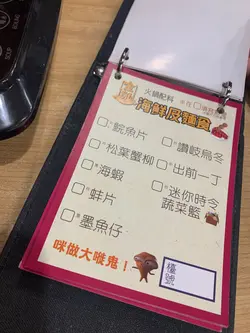 火鍋配料
海鮮及麵食
鯇魚片
松葉蟹柳
海蝦
蚌片
墨魚仔
讚岐烏冬
出前一丁
迷你時令
蔬菜籃
咪做大嘥鬼！
檯號